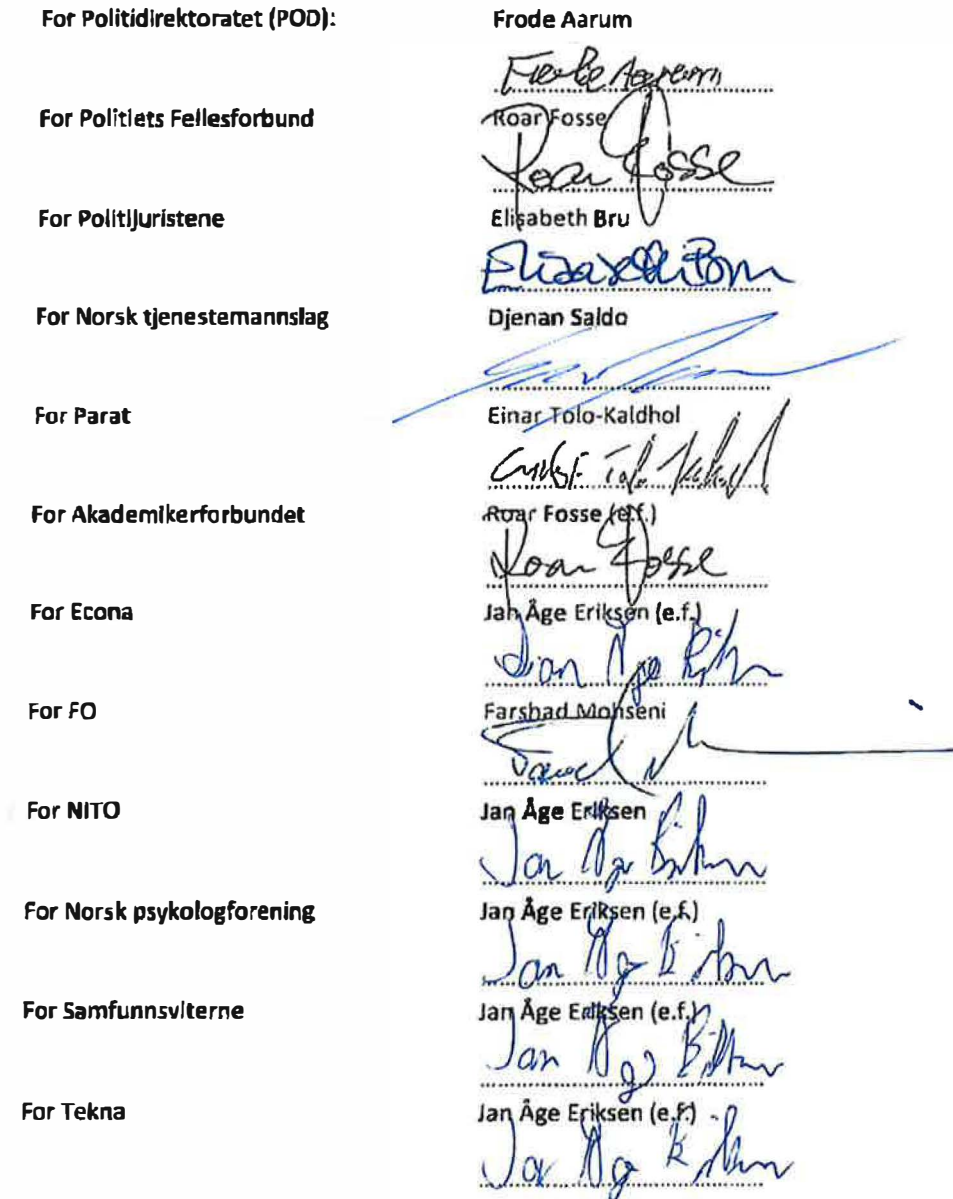 For Politidirektoratet (POD): Frode Aarum
For Politiets Fellesforbund Roar Fosse
Roar Fosse
For Politijuristene Elisabeth Bru
For Norsk tjenestemannslag Djenan Saldo
For Parat Einar Tolo-Kaldhol
For Akademikerforbundet Roar Fosse (e.f.)
Roar Fosse
For Econa Jan Åge Eriksen (e.f.)
For FO Farshad Mohseni
For NITO Jan Åge Eriksen
For Norsk psykologforening Jan Åge Eriksen (e.f.)
For Samfunnsviterne Jan Åge Eriksen (e.f.)
For Tekna Jan Åge Eriksen (e.f.)